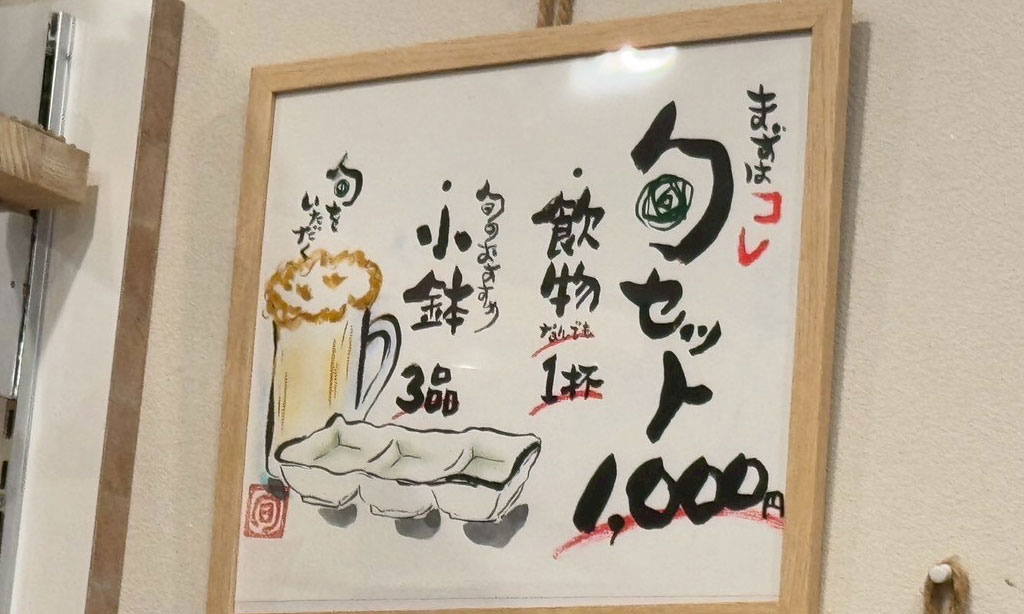 まずはコレ
旬セット
1,000円
・飲物
なんでも
1杯
旬のおすすめ
・小鉢
3品
旬を
いただく